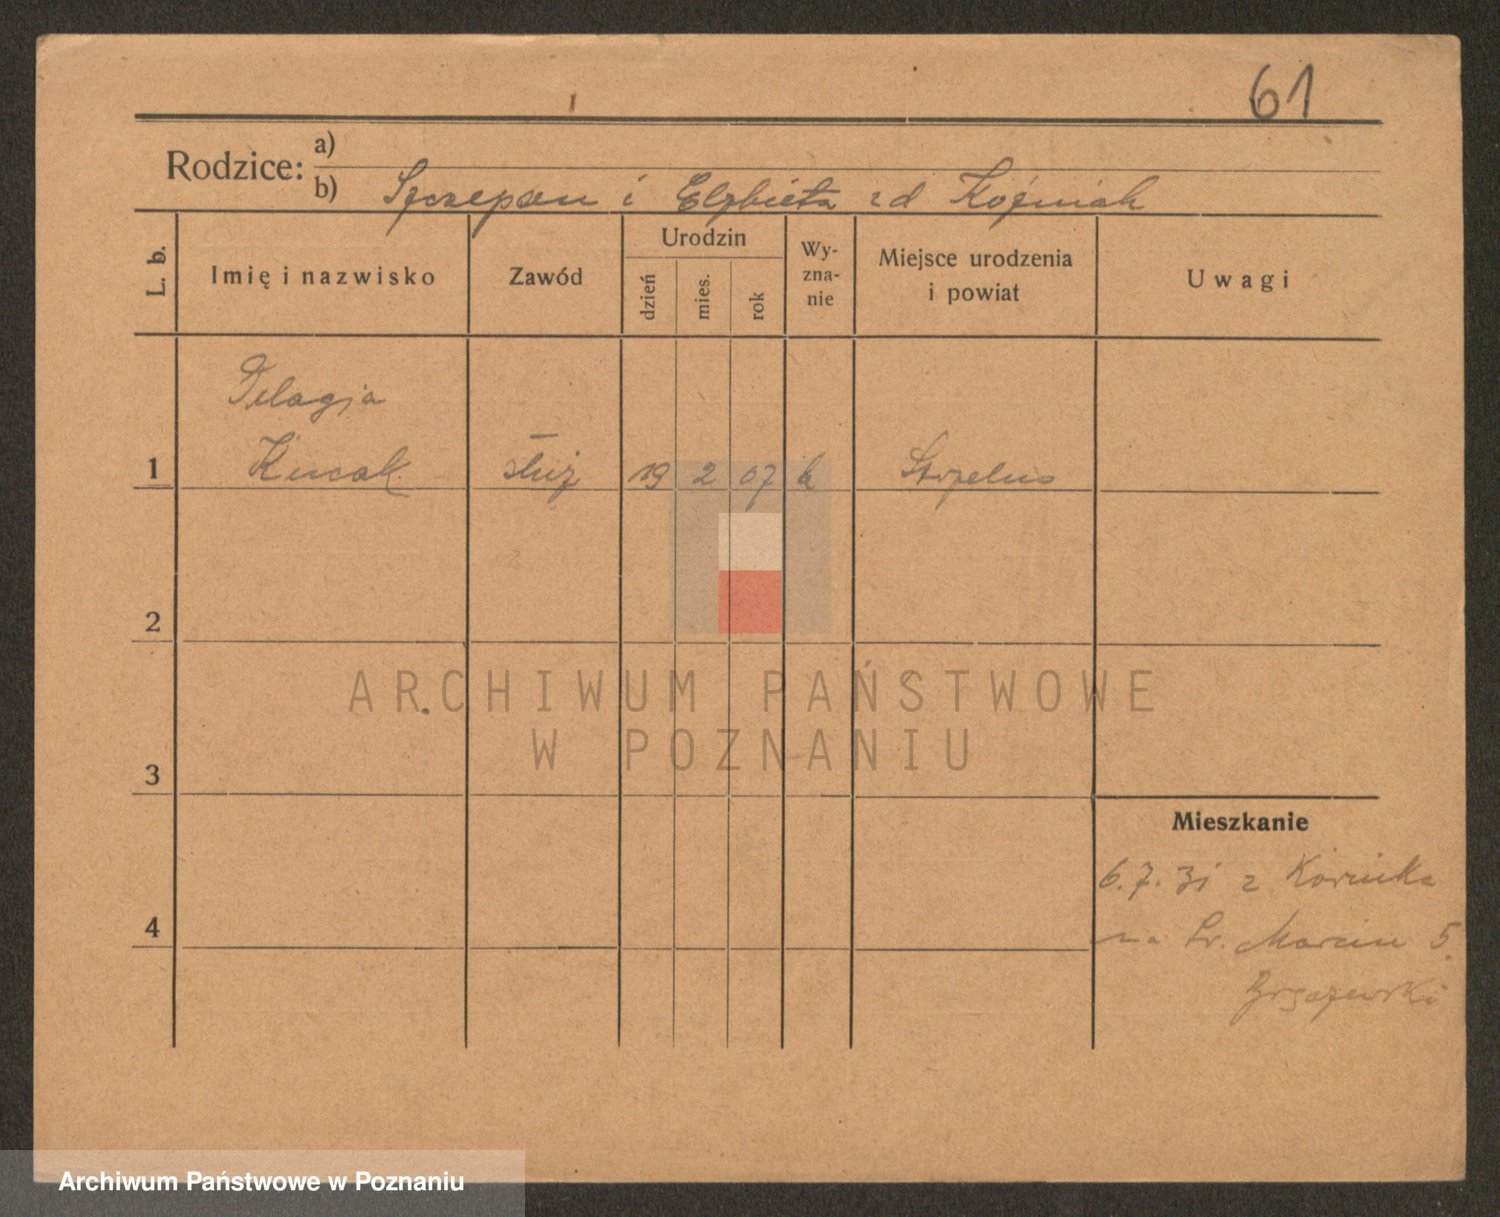 61
Rodzice: a)
b) Szczepan i Elżbieta zd Koźmiak
L. b.
Imię i nazwisko
Zawód
Urodzin
dzień
mies.
rok
Wy-
zna-
nie
Miejsce urodzenia
i powiat
Uwagi
Pelagja
1 Kucak służ 19 2 07 k Strzelno
2
3
4
Mieszkanie
6.7.31 z Kórnika
na Św. Marcin 5.
ARCHIWUM PAŃSTWOWE
W POZNANIU
Archiwum Państwowe w Poznaniu